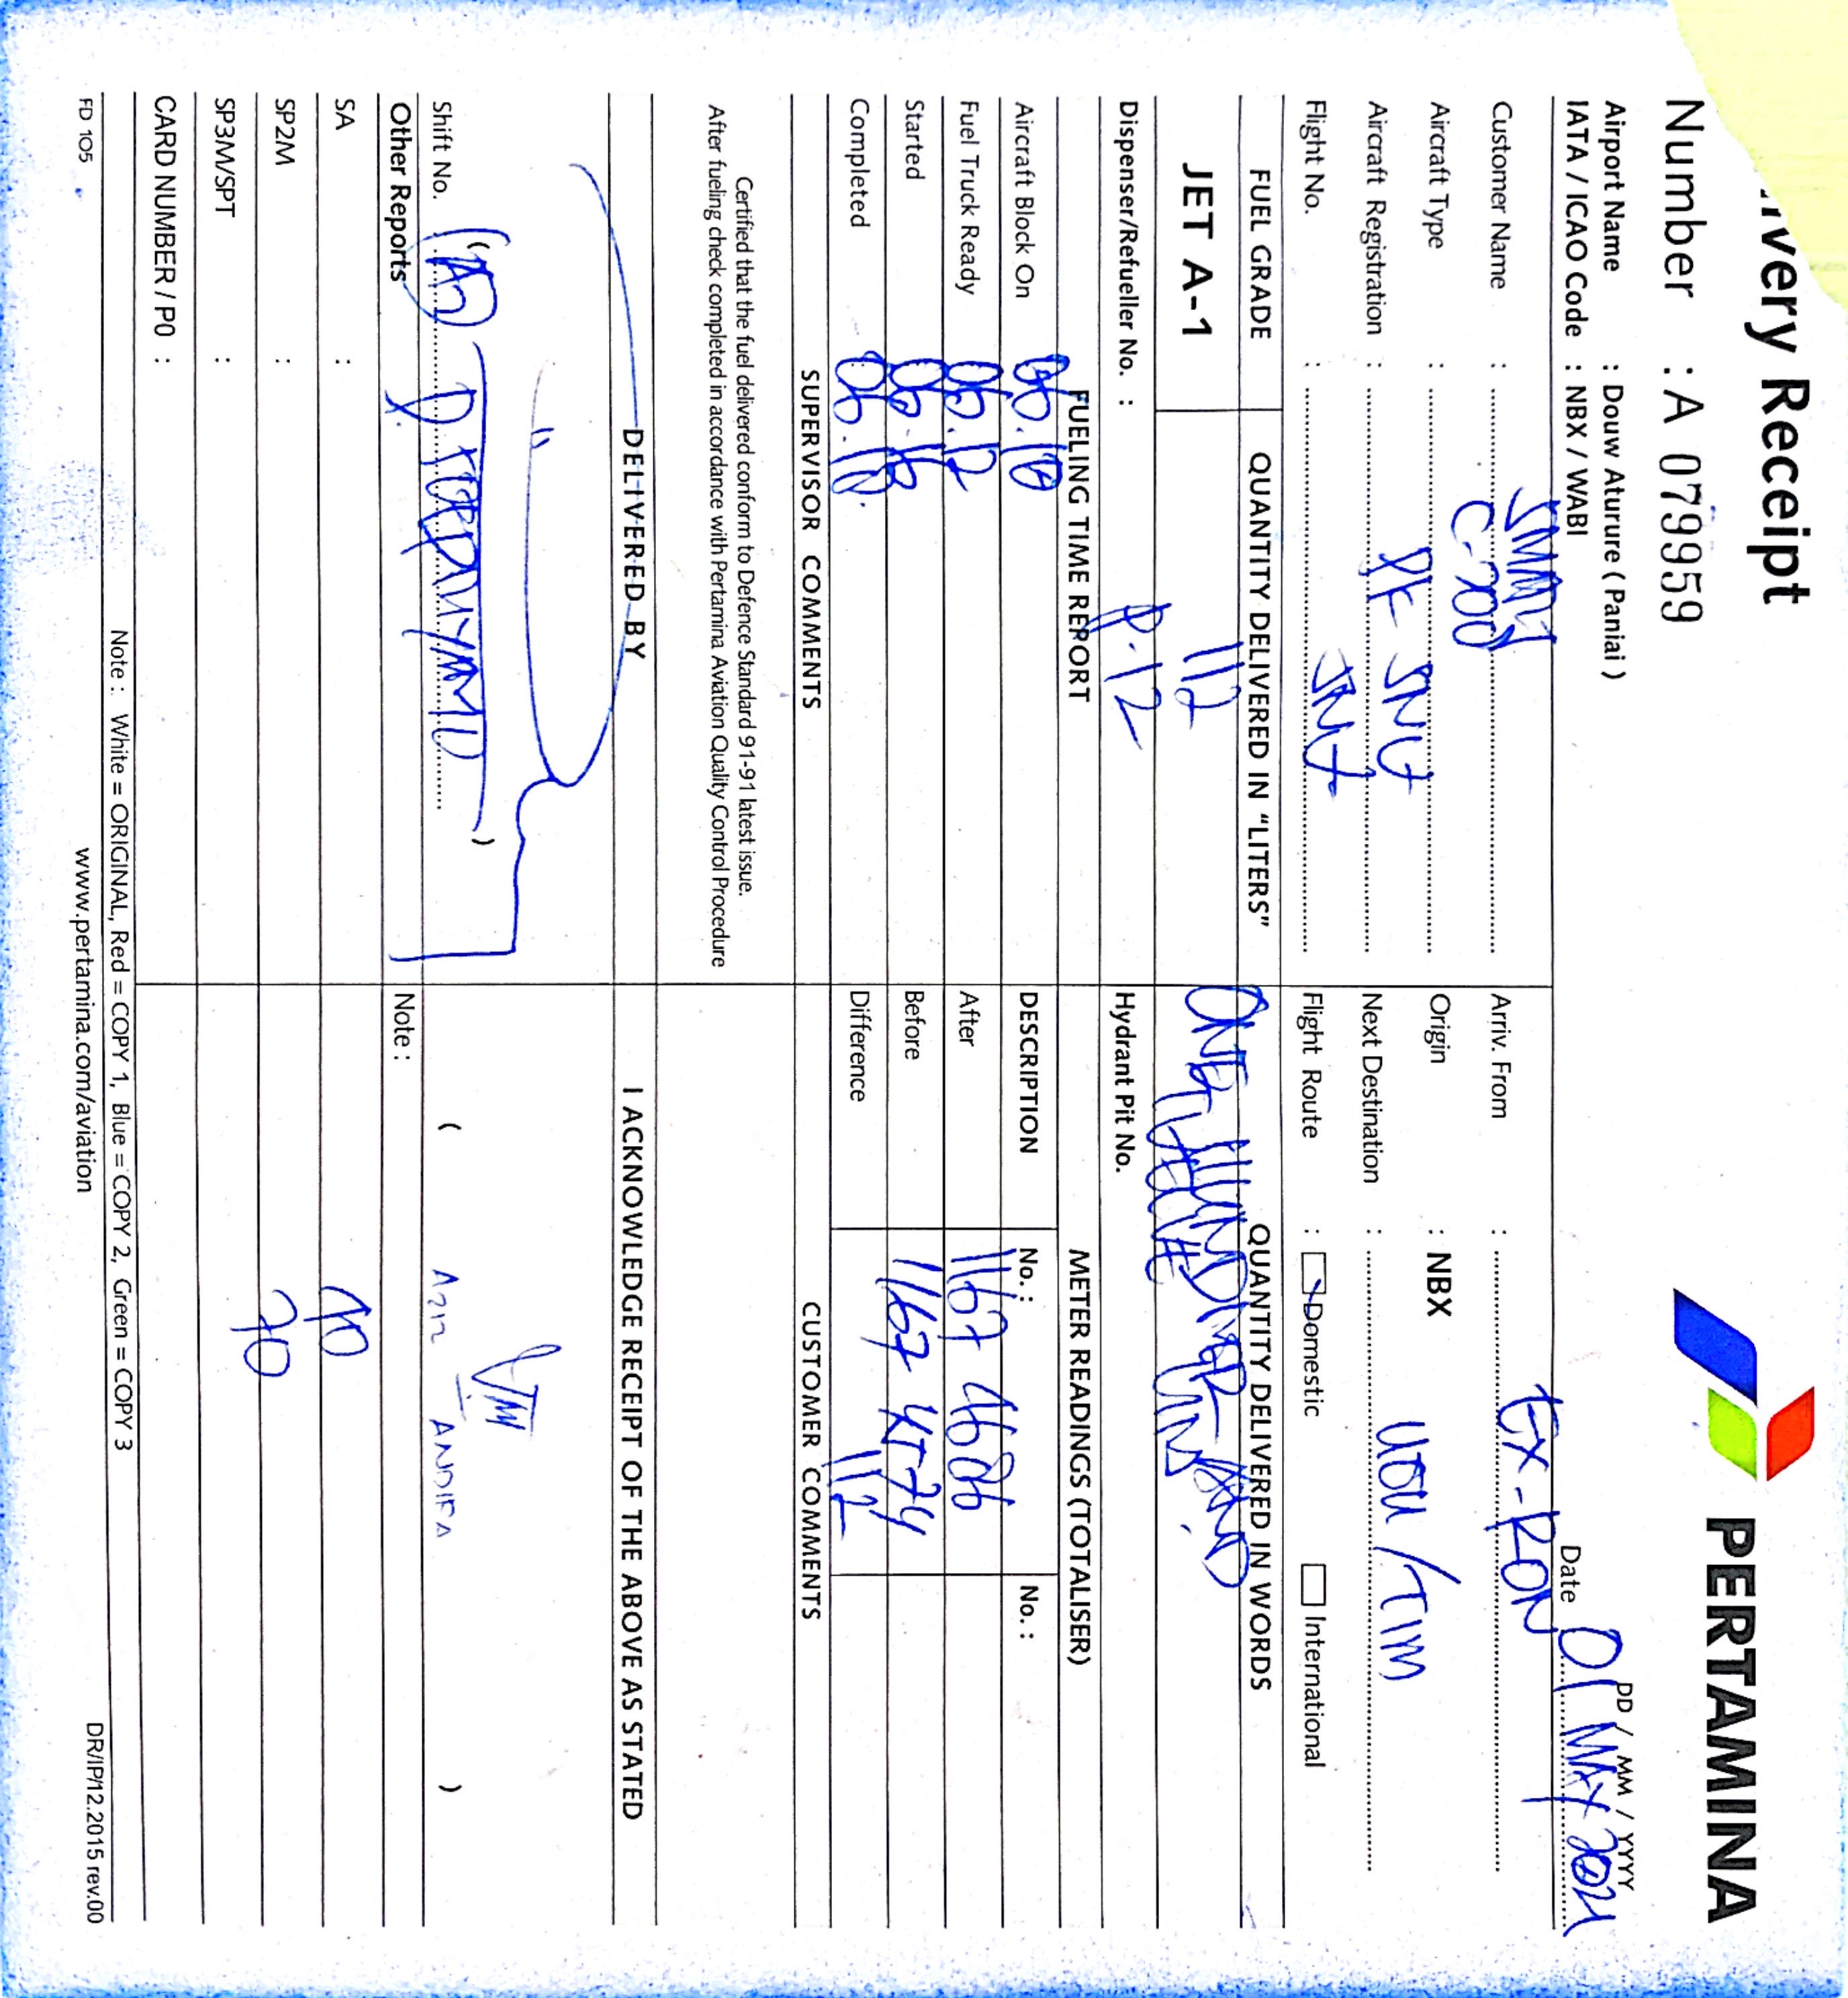 ivery Receipt
PERTAMINA
Number : A 0799959
DD / MM / YYYY
Airport Name : Douw Aturure ( Paniai )
Date 01 MAY 2021
IATA / ICAO Code : NBX / WABI
Customer Name : SMART
Arriv. From : EX-RON
Aircraft Type : C-208
Origin : NBX
Aircraft Registration : PK SNU
Next Destination : UOU / TIM
Flight No. :
Flight Route : Domestic International
FUEL GRADE
QUANTITY DELIVERED IN "LITERS"
QUANTITY DELIVERED IN WORDS
JET A-1
112
ONE HUNDRED AND
TWELVE
Dispenser/Refueller No. : P.12
Hydrant Pit No.
FUELING TIME REPORT
METER READINGS (TOTALISER)
Aircraft Block On
DESCRIPTION
No. :
No. :
Fuel Truck Ready 06.12
After 1167 4686
Started
Before 1167 4574
Completed
Difference 112
SUPERVISOR COMMENTS
CUSTOMER COMMENTS
Certified that the fuel delivered conform to Defence Standard 91-91 latest issue.
After fueling check completed in accordance with Pertamina Aviation Quality Control Procedure
DELIVERED BY
I ACKNOWLEDGE RECEIPT OF THE ABOVE AS STATED
( )
Shift No.
Other Reports
Note :
SA : 90
SP2M : 70
SP3M/SPT :
CARD NUMBER / P0 :
Note : White = ORIGINAL, Red = COPY 1, Blue = COPY 2, Green = COPY 3
FD 105
www.pertamina.com/aviation
DR/IP/12.2015 rev.00